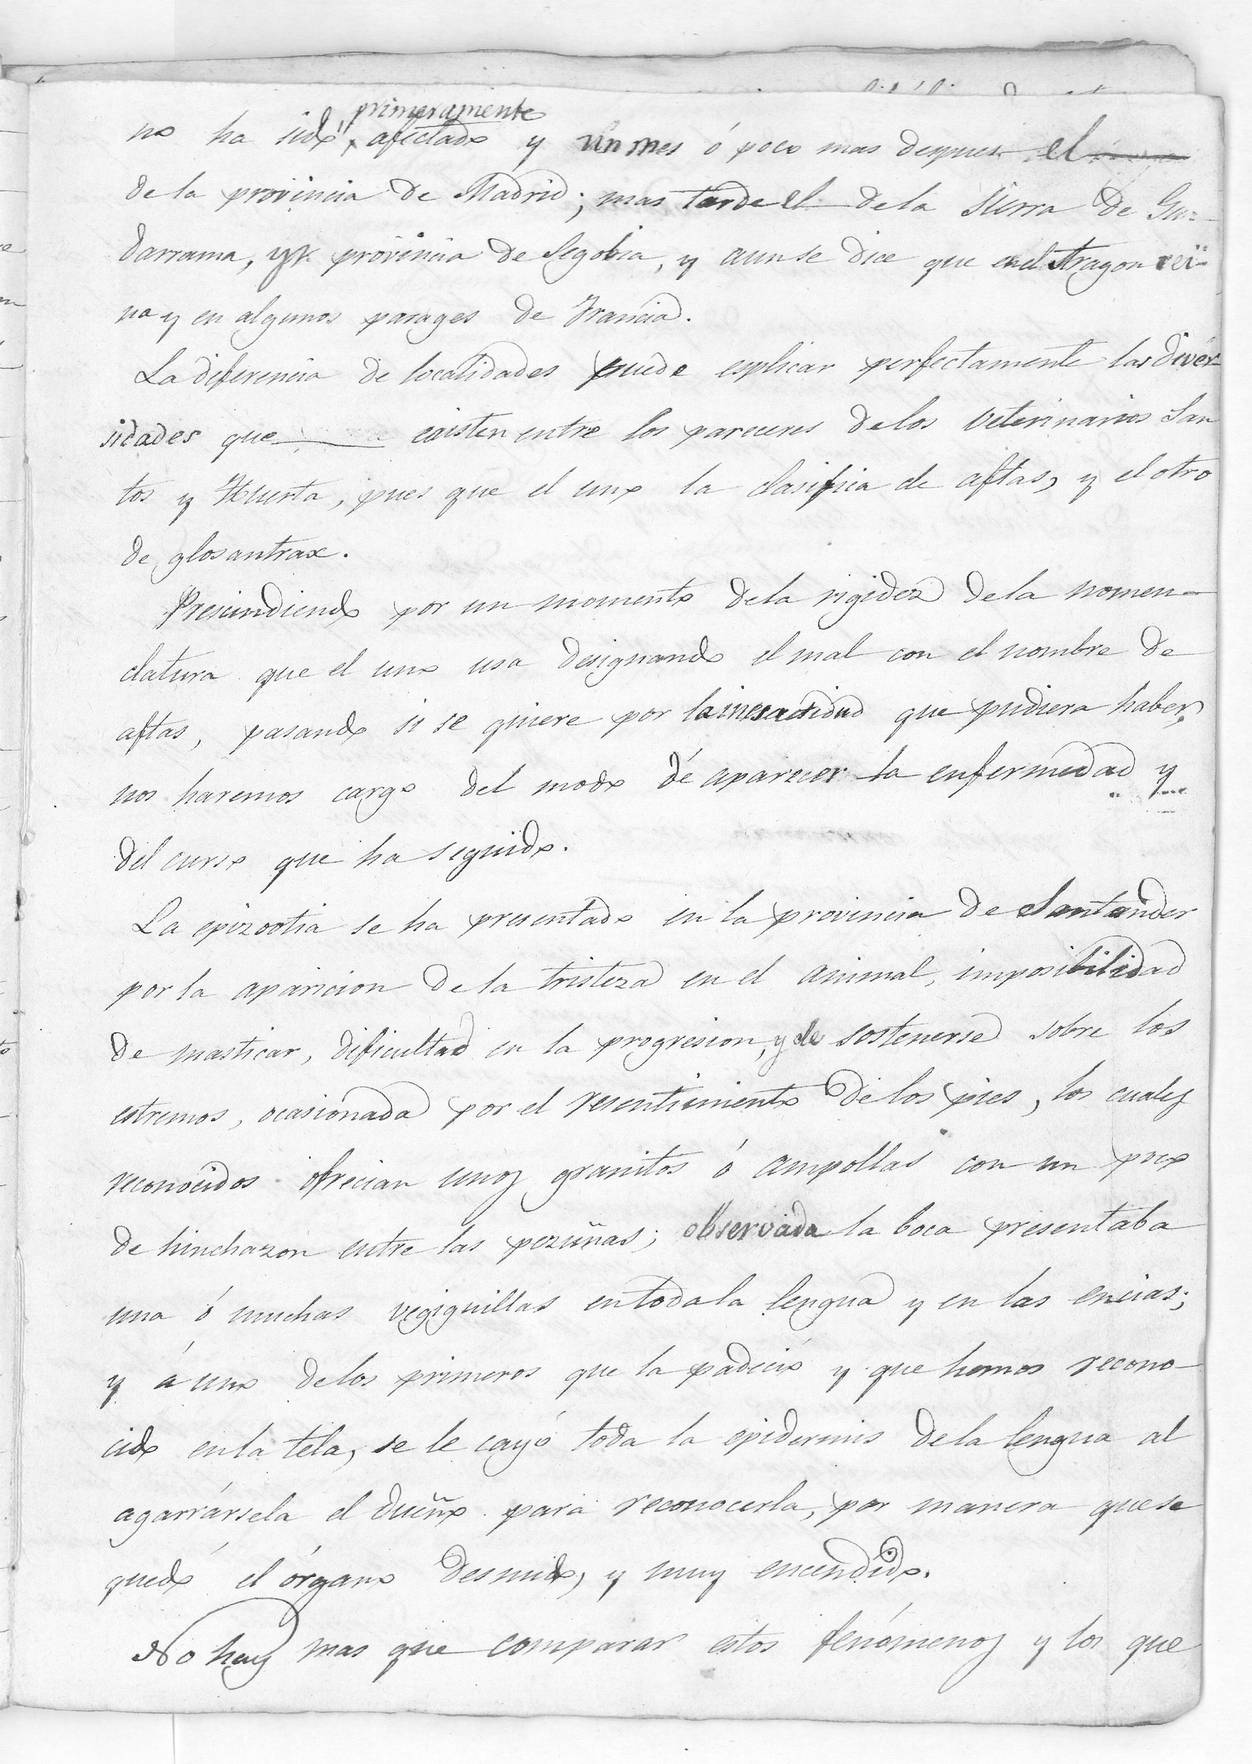 primeramente
no ha sido afectado y un mes ó poco mas despues el
de la provincia de Madrid; mas tarde el de la Sierra de Gua-
darrama, y provincia de Segobia, y aun se dice que en el Aragon rei-
na y en algunos parages de Francia.
La diferencia de localidades puede esplicar perfectamente las diver-
sidades que existen entre los pareceres de los Veterinarios San
tos y Huerta, pues que el uno la clasifica de aftas, y el otro
de glosantrax.
Prescindiendo por un momento de la rigidez de la nomen-
clatura que el uno usa designando el mal con el nombre de
aftas, pasando si se quiere por la inesactitud que pudiera haber,
nos haremos cargo del modo de aparecer la enfermedad y
del curso que ha seguido.
La epizootia se ha presentado en la provincia de Santander
por la aparicion de la tristeza en el animal, imposibilidad
de masticar, dificultad en la progresion, y de sostenerse sobre los
estremos, ocasionada por el resentimiento de los pies, los cuales
reconocidos ofrecian unos granitos ó ampollas con un poco
de hinchazon entre las pezuñas; observada la boca presentaba
una ó muchas vegiguillas en toda la lengua y en las encias;
y á uno de los primeros que la padeció y que hemos recono-
cido en la tela, se le cayó toda la epidermis de la lengua al
agarrársela el dueño para reconocerla, por manera que se
quedó el órgano desnudo, y muy encendido.
No hay mas que comparar estos fenómenos y los que